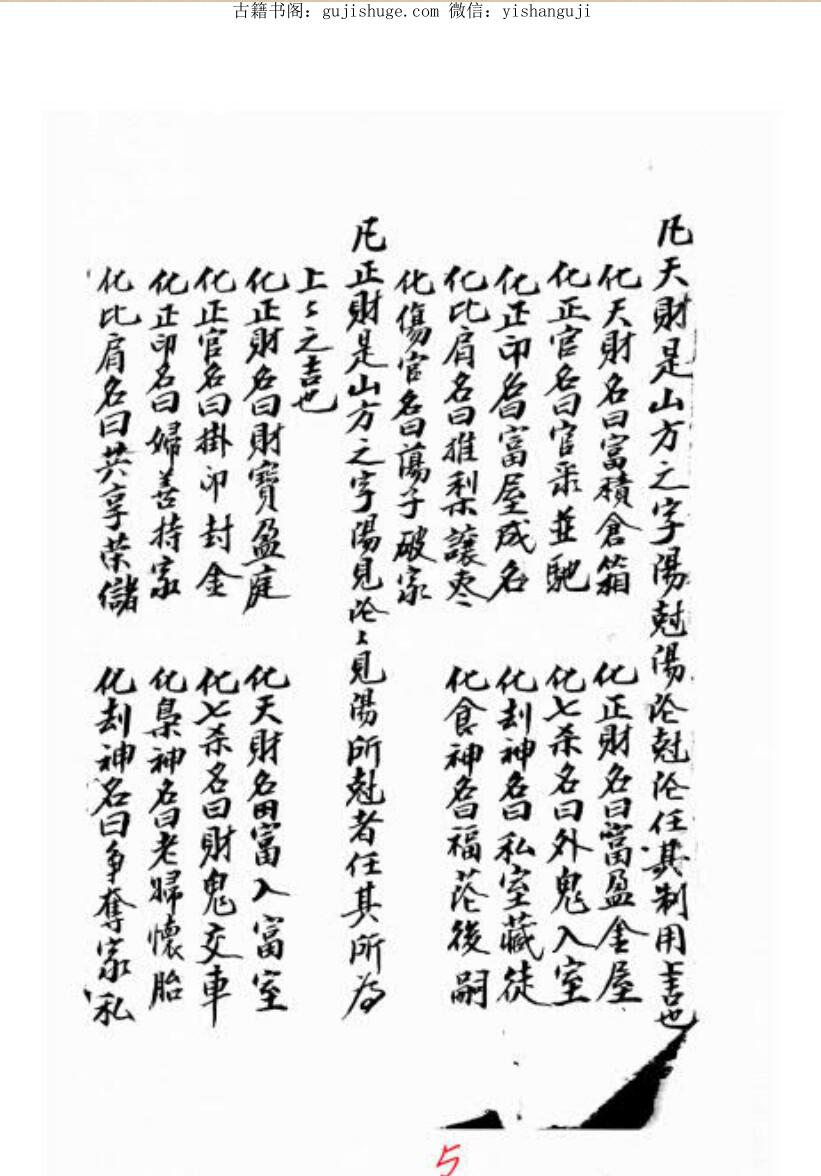 古籍书阁：gujishuge.com 微信：yishanguji
凡天財是山方之字陽尅陽阴尅阴任其制用上吉也
化天財名曰富積倉箱 化正財名曰富盈金屋
化正官名曰官祿並馳 化七杀名曰外鬼入室
化正印名曰富屋成名 化刦神名曰私室藏徒
化比肩名曰推梨讓枣 化食神名曰福荫後嗣
化傷官名曰蕩子破家
凡正財是山方之字陽見阴〻見陽所尅者任其所为
上〻之吉也
化正財名曰財寶盈庭 化天財名曰富入富室
化正官名曰掛印封金 化七杀名曰財鬼交車
化正印名曰婦善持家 化梟神名曰老婦懷胎
化比肩名曰共享荣儲 化刦神名曰争奪家私
5